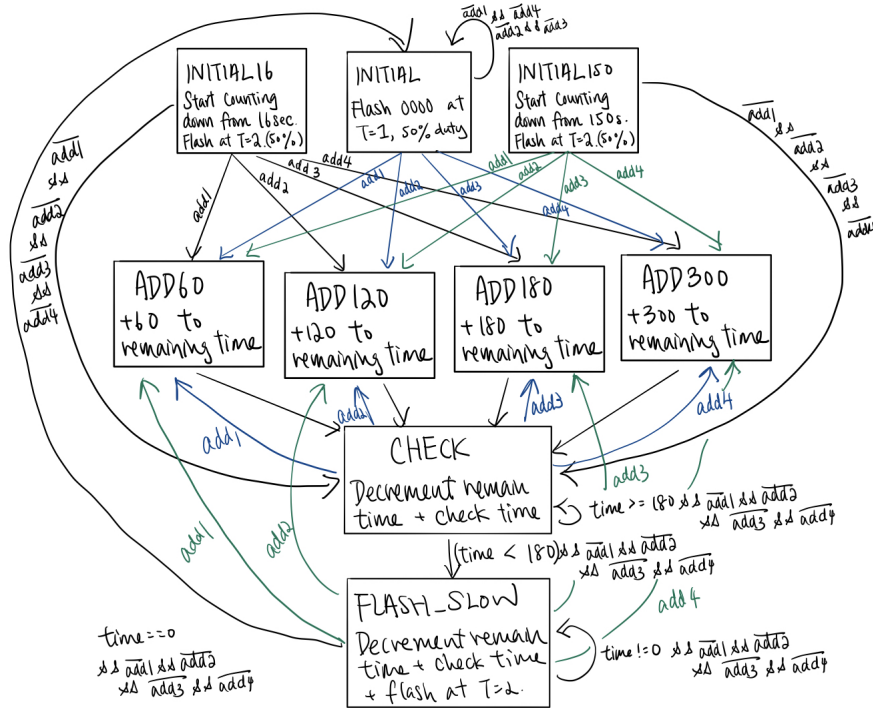 add1 && add4
add2 && add3
INITIAL16
Start Counting
down from 16sec.
Flash at T=2.(50%)
INITIAL
Flash 0000 at
T=1, 50% duty
INITIAL150
Start Counting
down from 150s.
Flash at T=2.(50%)
add1
&&
add2
&&
add3
&&
add4
add1
&&
add2
&&
add3
&&
add4
add1
add2
add3
add4
add1
add2
add3
add4
add1
add2
add3
add4
ADD60
+60 to
remaining time
ADD120
+120 to
remaining time
ADD180
+180 to
remaining time
ADD300
+300 to
remaining time
add1
add2
add3
add4
CHECK
Decrement remain
time + check time
add1
add2
add3
time >= 180 && add1 && add2
&& add3 && add4
(time < 180) && add1 && add2
&& add3 && add4
add4
FLASH_SLOW
Decrement remain
time + check time
+ flash at T=2.
time==0
&& add1 && add2
&& add3 && add4
time!=0 && add1 && add2
&& add3 && add4